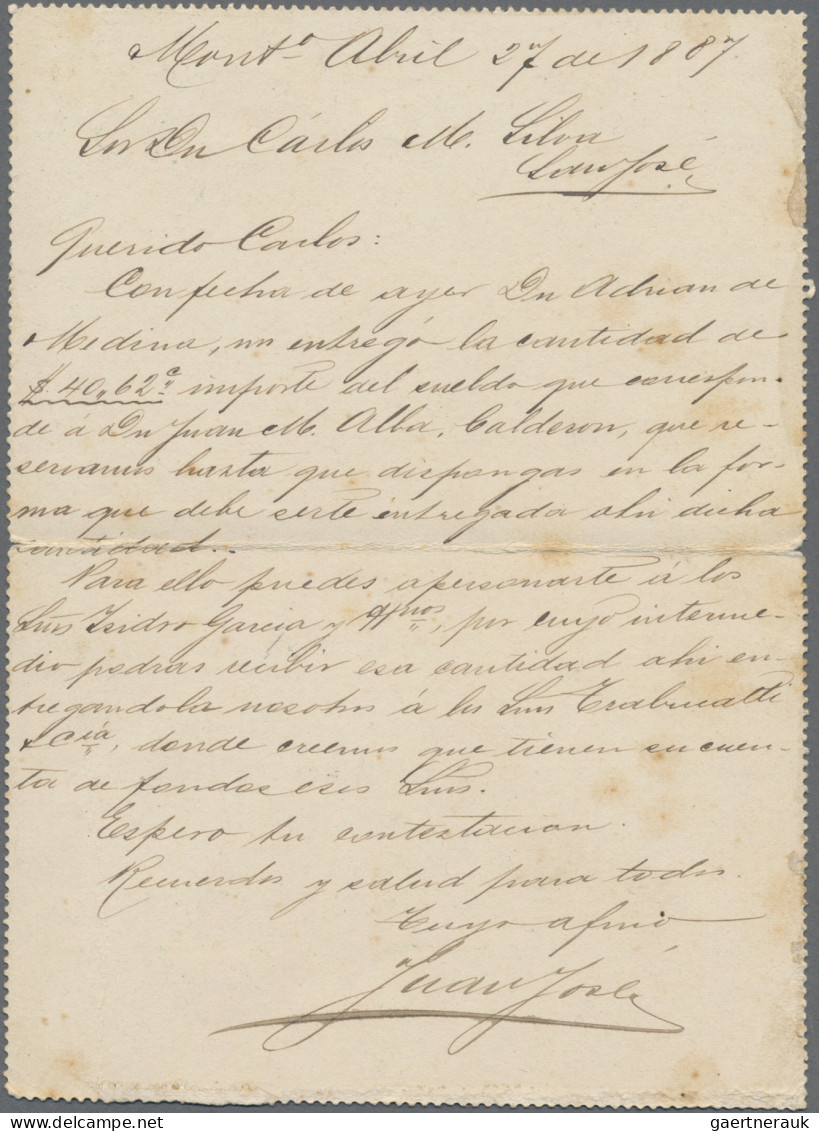 Mont.º Abril 27 de 1887.
Sor Dn Cárlos M. Silva
San José
Querido Carlos:
Con fecha de ayer Dn Adrian de
Medina, nn entregó la cantidad de
$ 40,,62 c importe del sueldo que correspon-
de á Dn Juan M. Alba, Calderon, que re-
servamos hazta que dispongas en la for-
ma que debe serte entregada ahi dicha
cantidad..
Para ello puedes apersonarte á los
Sres Isidro Garcia y Hnos, por cuyo interme-
dio podras recibir esa cantidad ahi en-
tregandola nosotros á los Sres Trabucatti
& Cia, donde creemos que tienen su cuen-
ta de fondos esos Sres.
Espero tu contextacion.
Recuerdos y salud para todos.
Tuyo afmo
Juan José
gaertnerauk